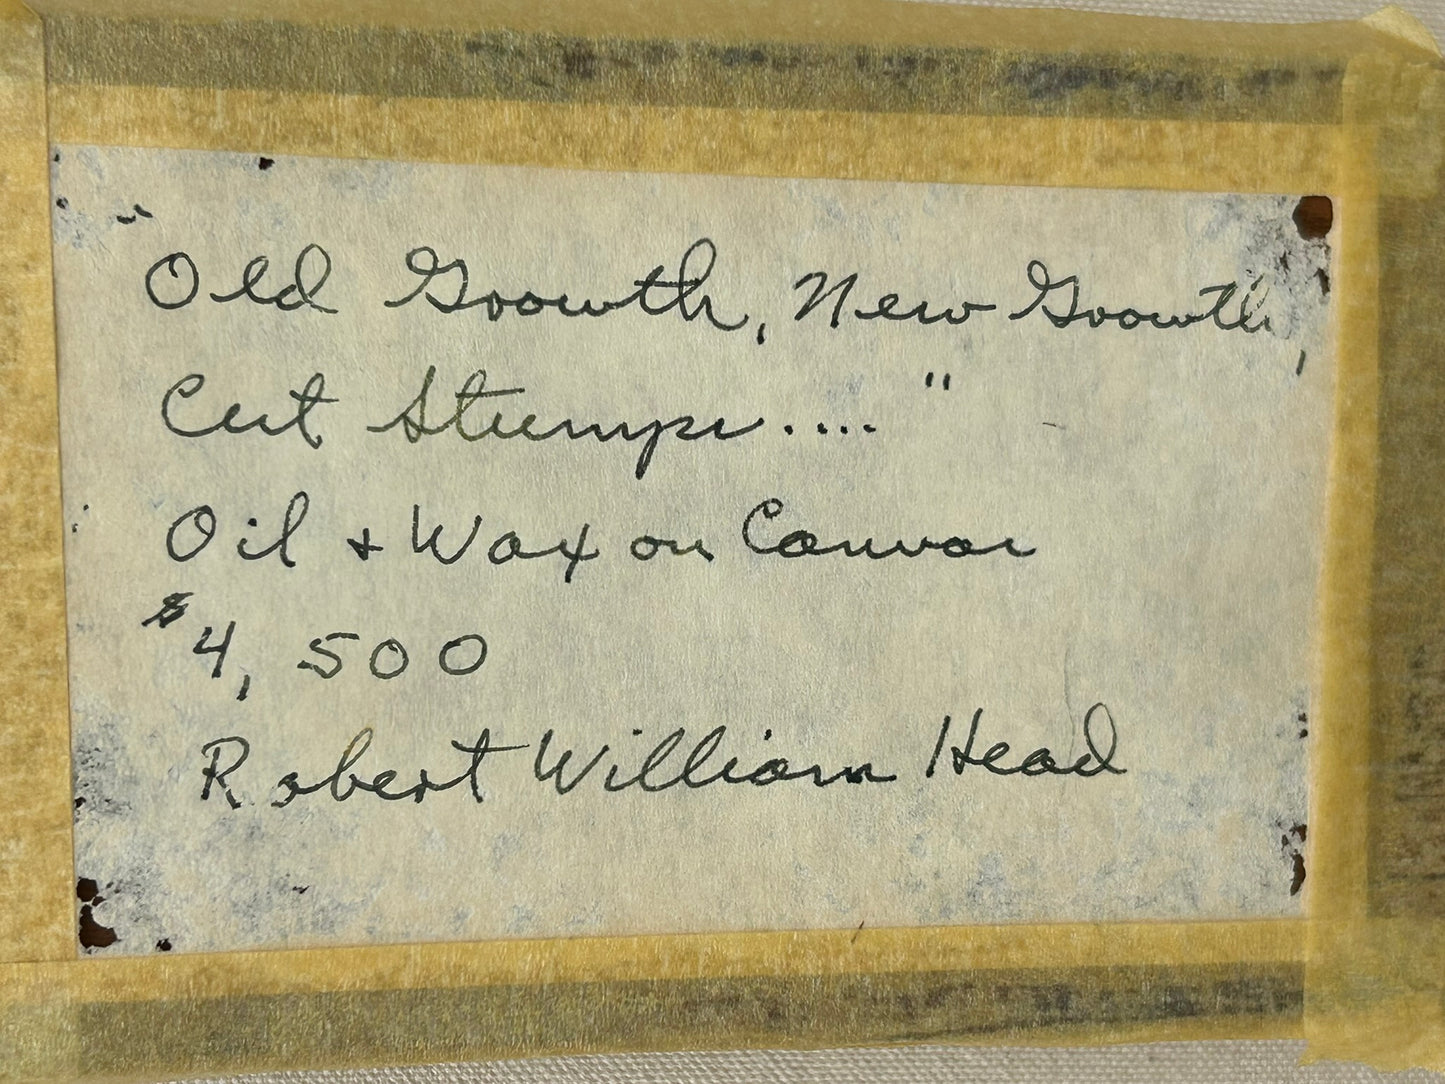 "Old Growth, New Growth,
Cut Stumps...."
Oil + Wax on Canvas
$4,500
Robert William Head